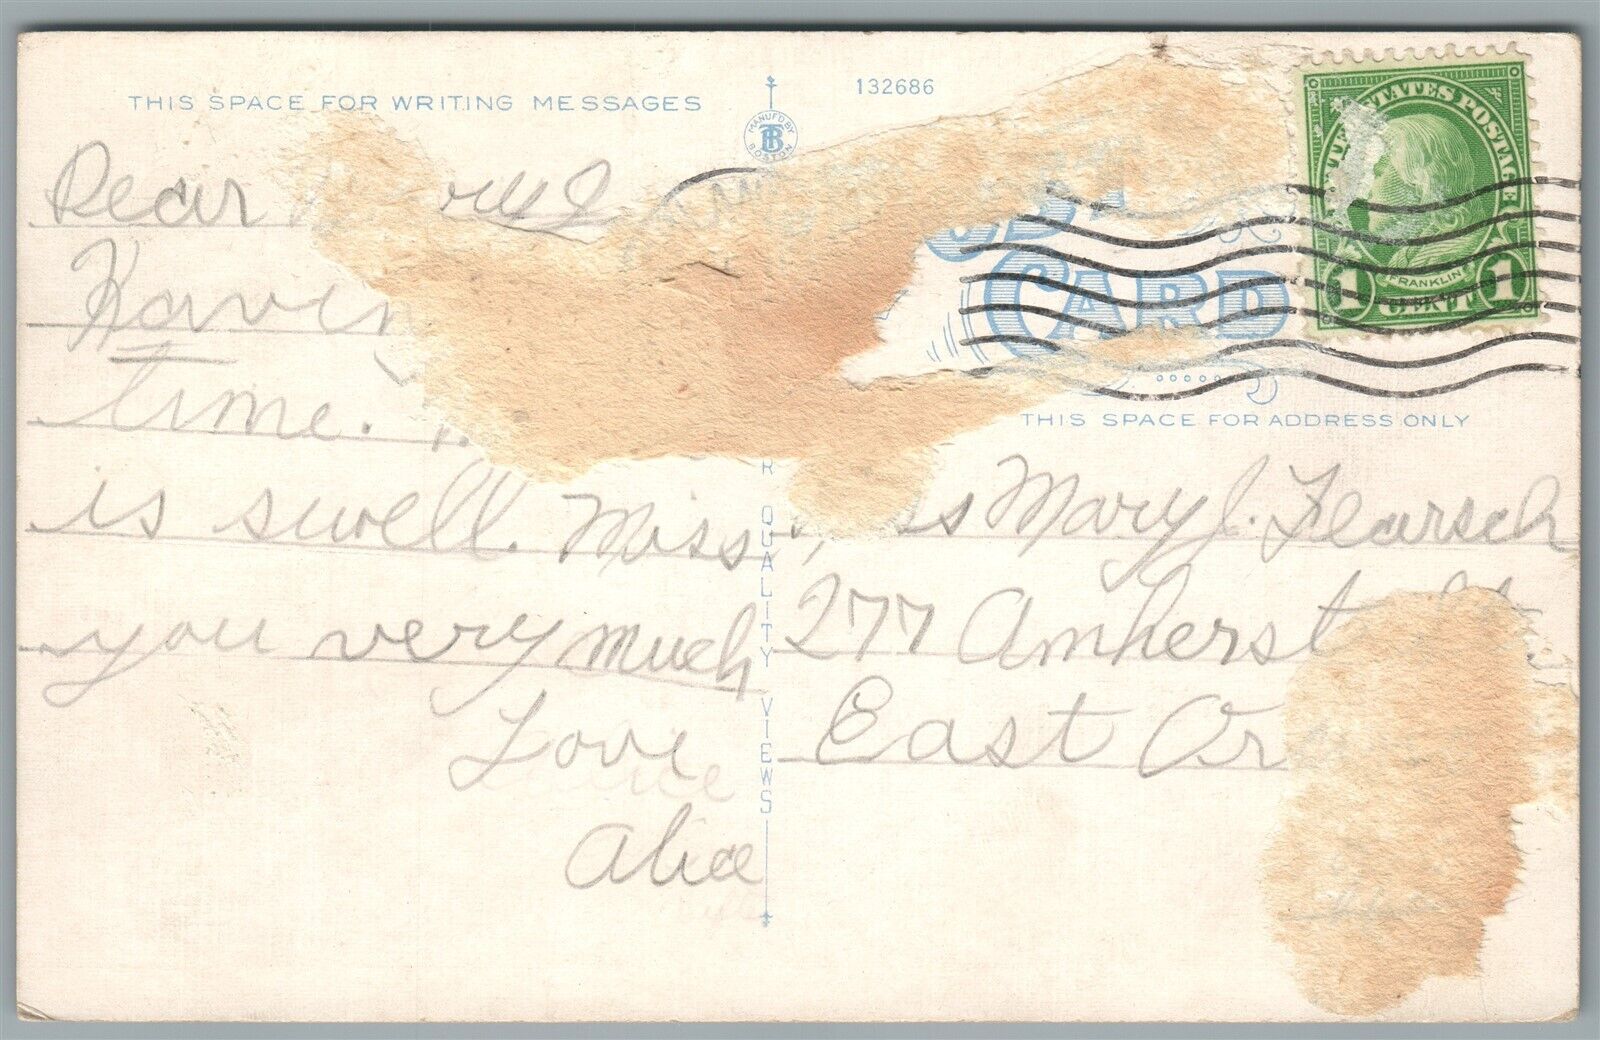 THIS SPACE FOR WRITING MESSAGES
132686
MANUFD BY
TB
BOSTON
UNITED STATES POSTAGE
FRANKLIN
1 CENT 1
CARD
THIS SPACE FOR ADDRESS ONLY
QUALITY VIEWS
Dear
Havin
time.
is swell. Miss
you very much
Love
Alice
Mary J. Flearsch
277 Amherst
East Or